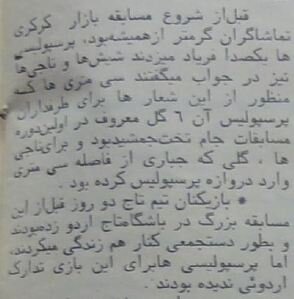 قبل‌از شروع مسابقه بازار کرکری
تماشاگران گرمتر ازهمیشه‌بود، پرسپولیسی
ها یکصدا فریاد میزدند شیش‌ها و تاجی‌ها
نیز در جواب میگفتند سی متری ها که
منظور از این شعار ها برای طرفداران
پرسپولیس آن ٦ گل معروف در اولین‌دوره
مسابقات جام تخت‌جمشیدبود و برای‌تاجی
ها ، گلی که جباری از فاصله سی متری
وارد دروازه پرسپولیس کرده بود .
* بازیکنان تیم تاج دو روز قبل‌از این
مسابقه بزرگ در باشگاه‌تاج اردو زده‌بودند
و بطور دستجمعی کنار هم زندگی میکردند،
اما پرسپولیسی هابرای این بازی تدارک
اردوئی ندیده بودند .